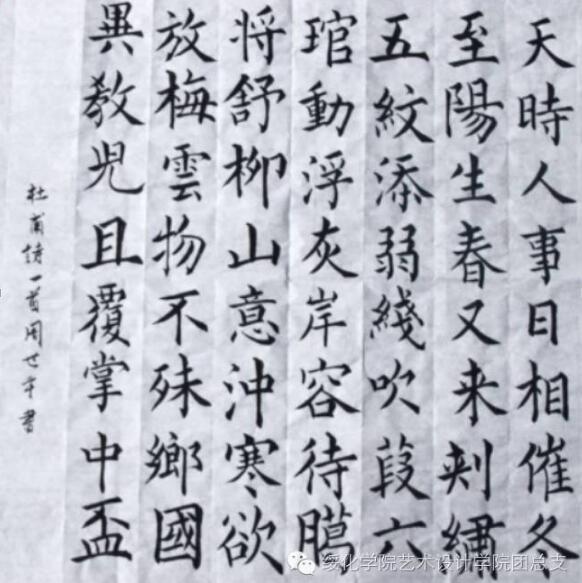 天時人事日相催冬
至陽生春又来刺繡
五紋添弱綫吹葭六
琯動浮灰岸容待臘
将舒柳山意沖寒欲
放梅雲物不殊鄉國
異教児且覆掌中盃
杜甫詩一首周世書
绥化学院艺术设计学院团总支